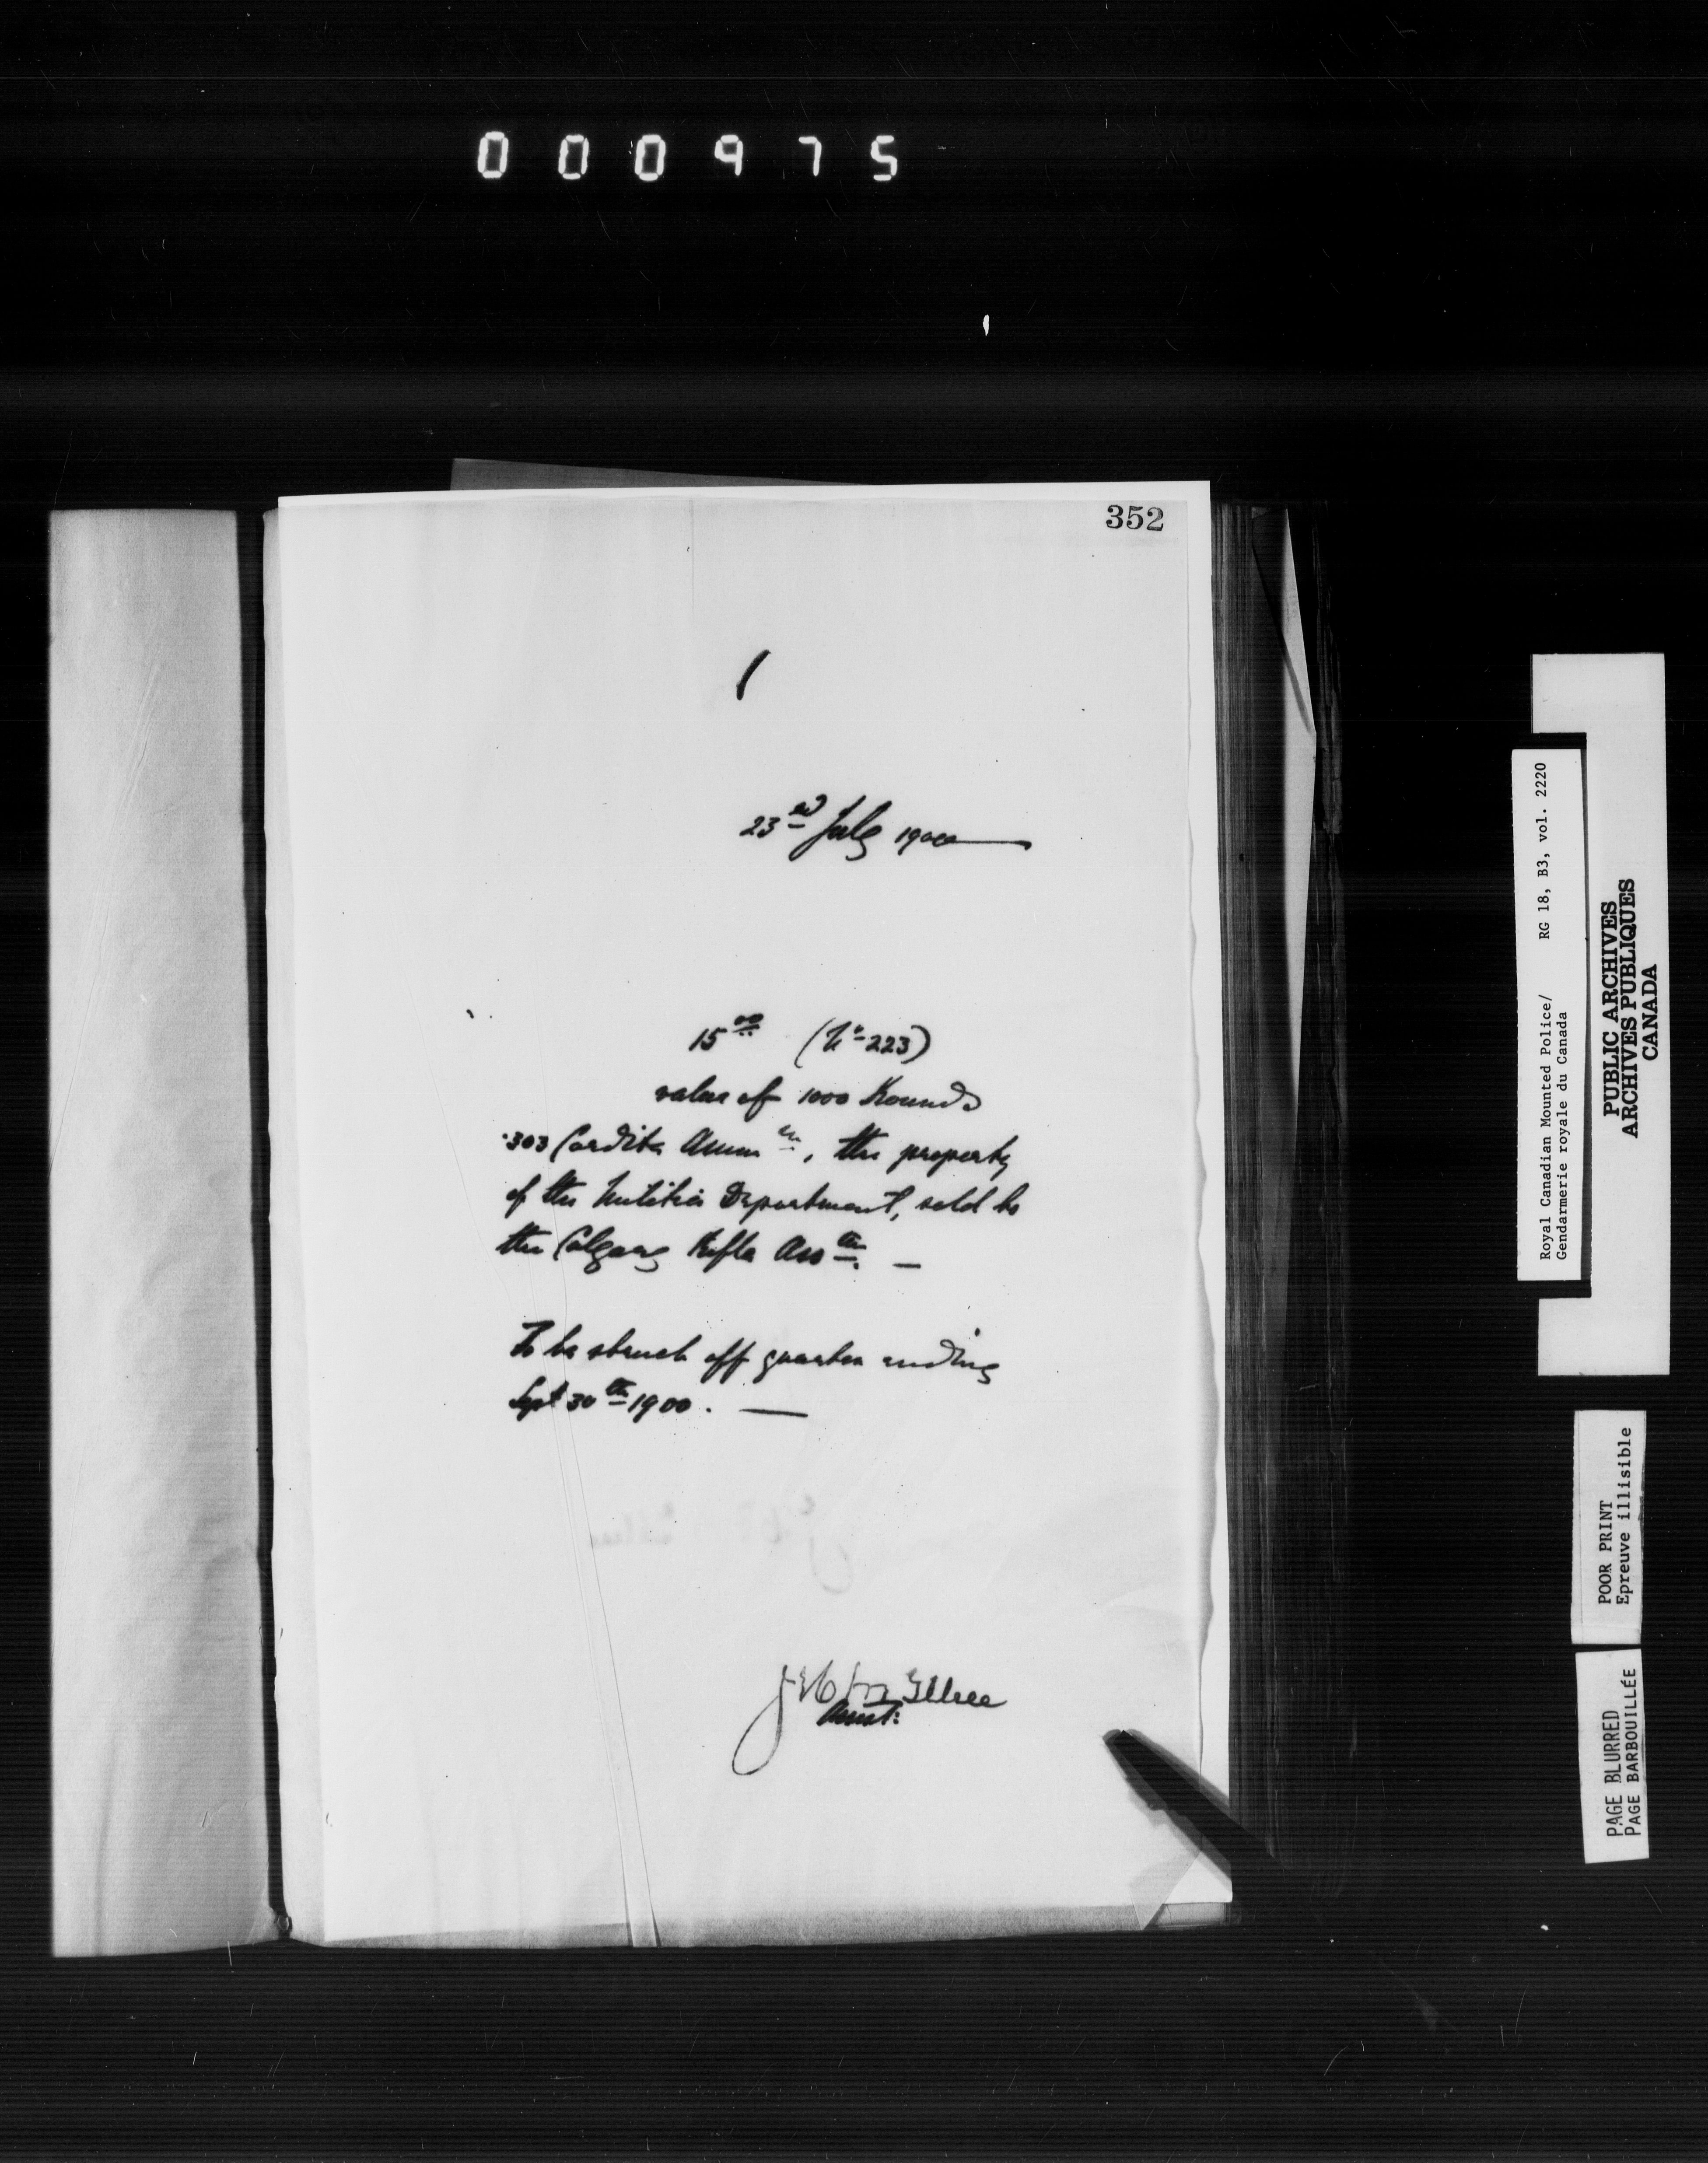 000975
352
23rd July 1900
15 00 (No 223)
value of 1000 Rounds
.303 Cordite Ammn, the property
of the Militia Department, sold to
the Calgary Rifle Assn. —
To be struck off quarter ending
Sept 30th 1900. —
Royal Canadian Mounted Police/ RG 18, B3, vol. 2220
Gendarmerie royale du Canada
PUBLIC ARCHIVES
ARCHIVES PUBLIQUES
CANADA
POOR PRINT
Epreuve illisible
PAGE BLURRED
PAGE BARBOUILLÉE